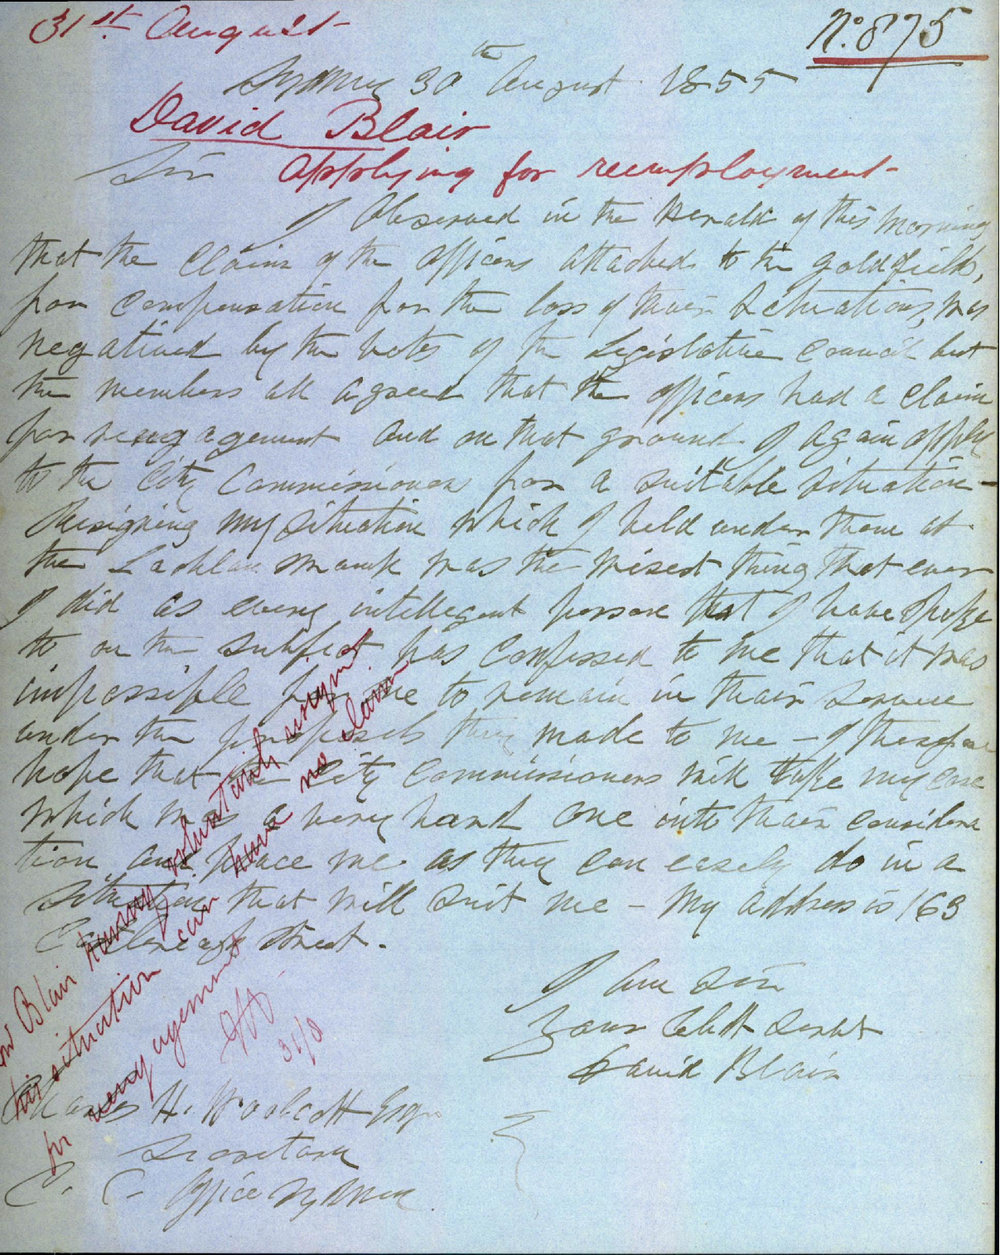 31st August
No. 875
Sydney 30th August 1855
David Blair
Sir applying for reemployment
I observed in the Herald of this Morning
that the claims of the officers attached to the goldfields,
for compensation for the loss of their situations, was
negatived by the votes of the Legislative council but
the members all agreed that the officers had a claim
for reengagement and on that ground I again apply
to the City Commissioners for a suitable situation -
Resigning my situation which I held under them at
the Lachlan was the
I did as every intellegent person that I have spoke
to on the subject has confessed to me that it was
impossible for me to remain in their service
under the proposals they made to me - I therefore
hope that the City Commissioners will take my case
which was a very hard one into their considera
tion and place me as they can easely do in a
situation that will suit me - My address is 163
Castlereagh street.
I am Sir
Your Obdt Servt
David Blair
Charles H. Woolcott Esqr
Secretary
C. C. Office Sydney
Blair having voluntarily resigned
his situation can have no claim
for reengagement
31/8